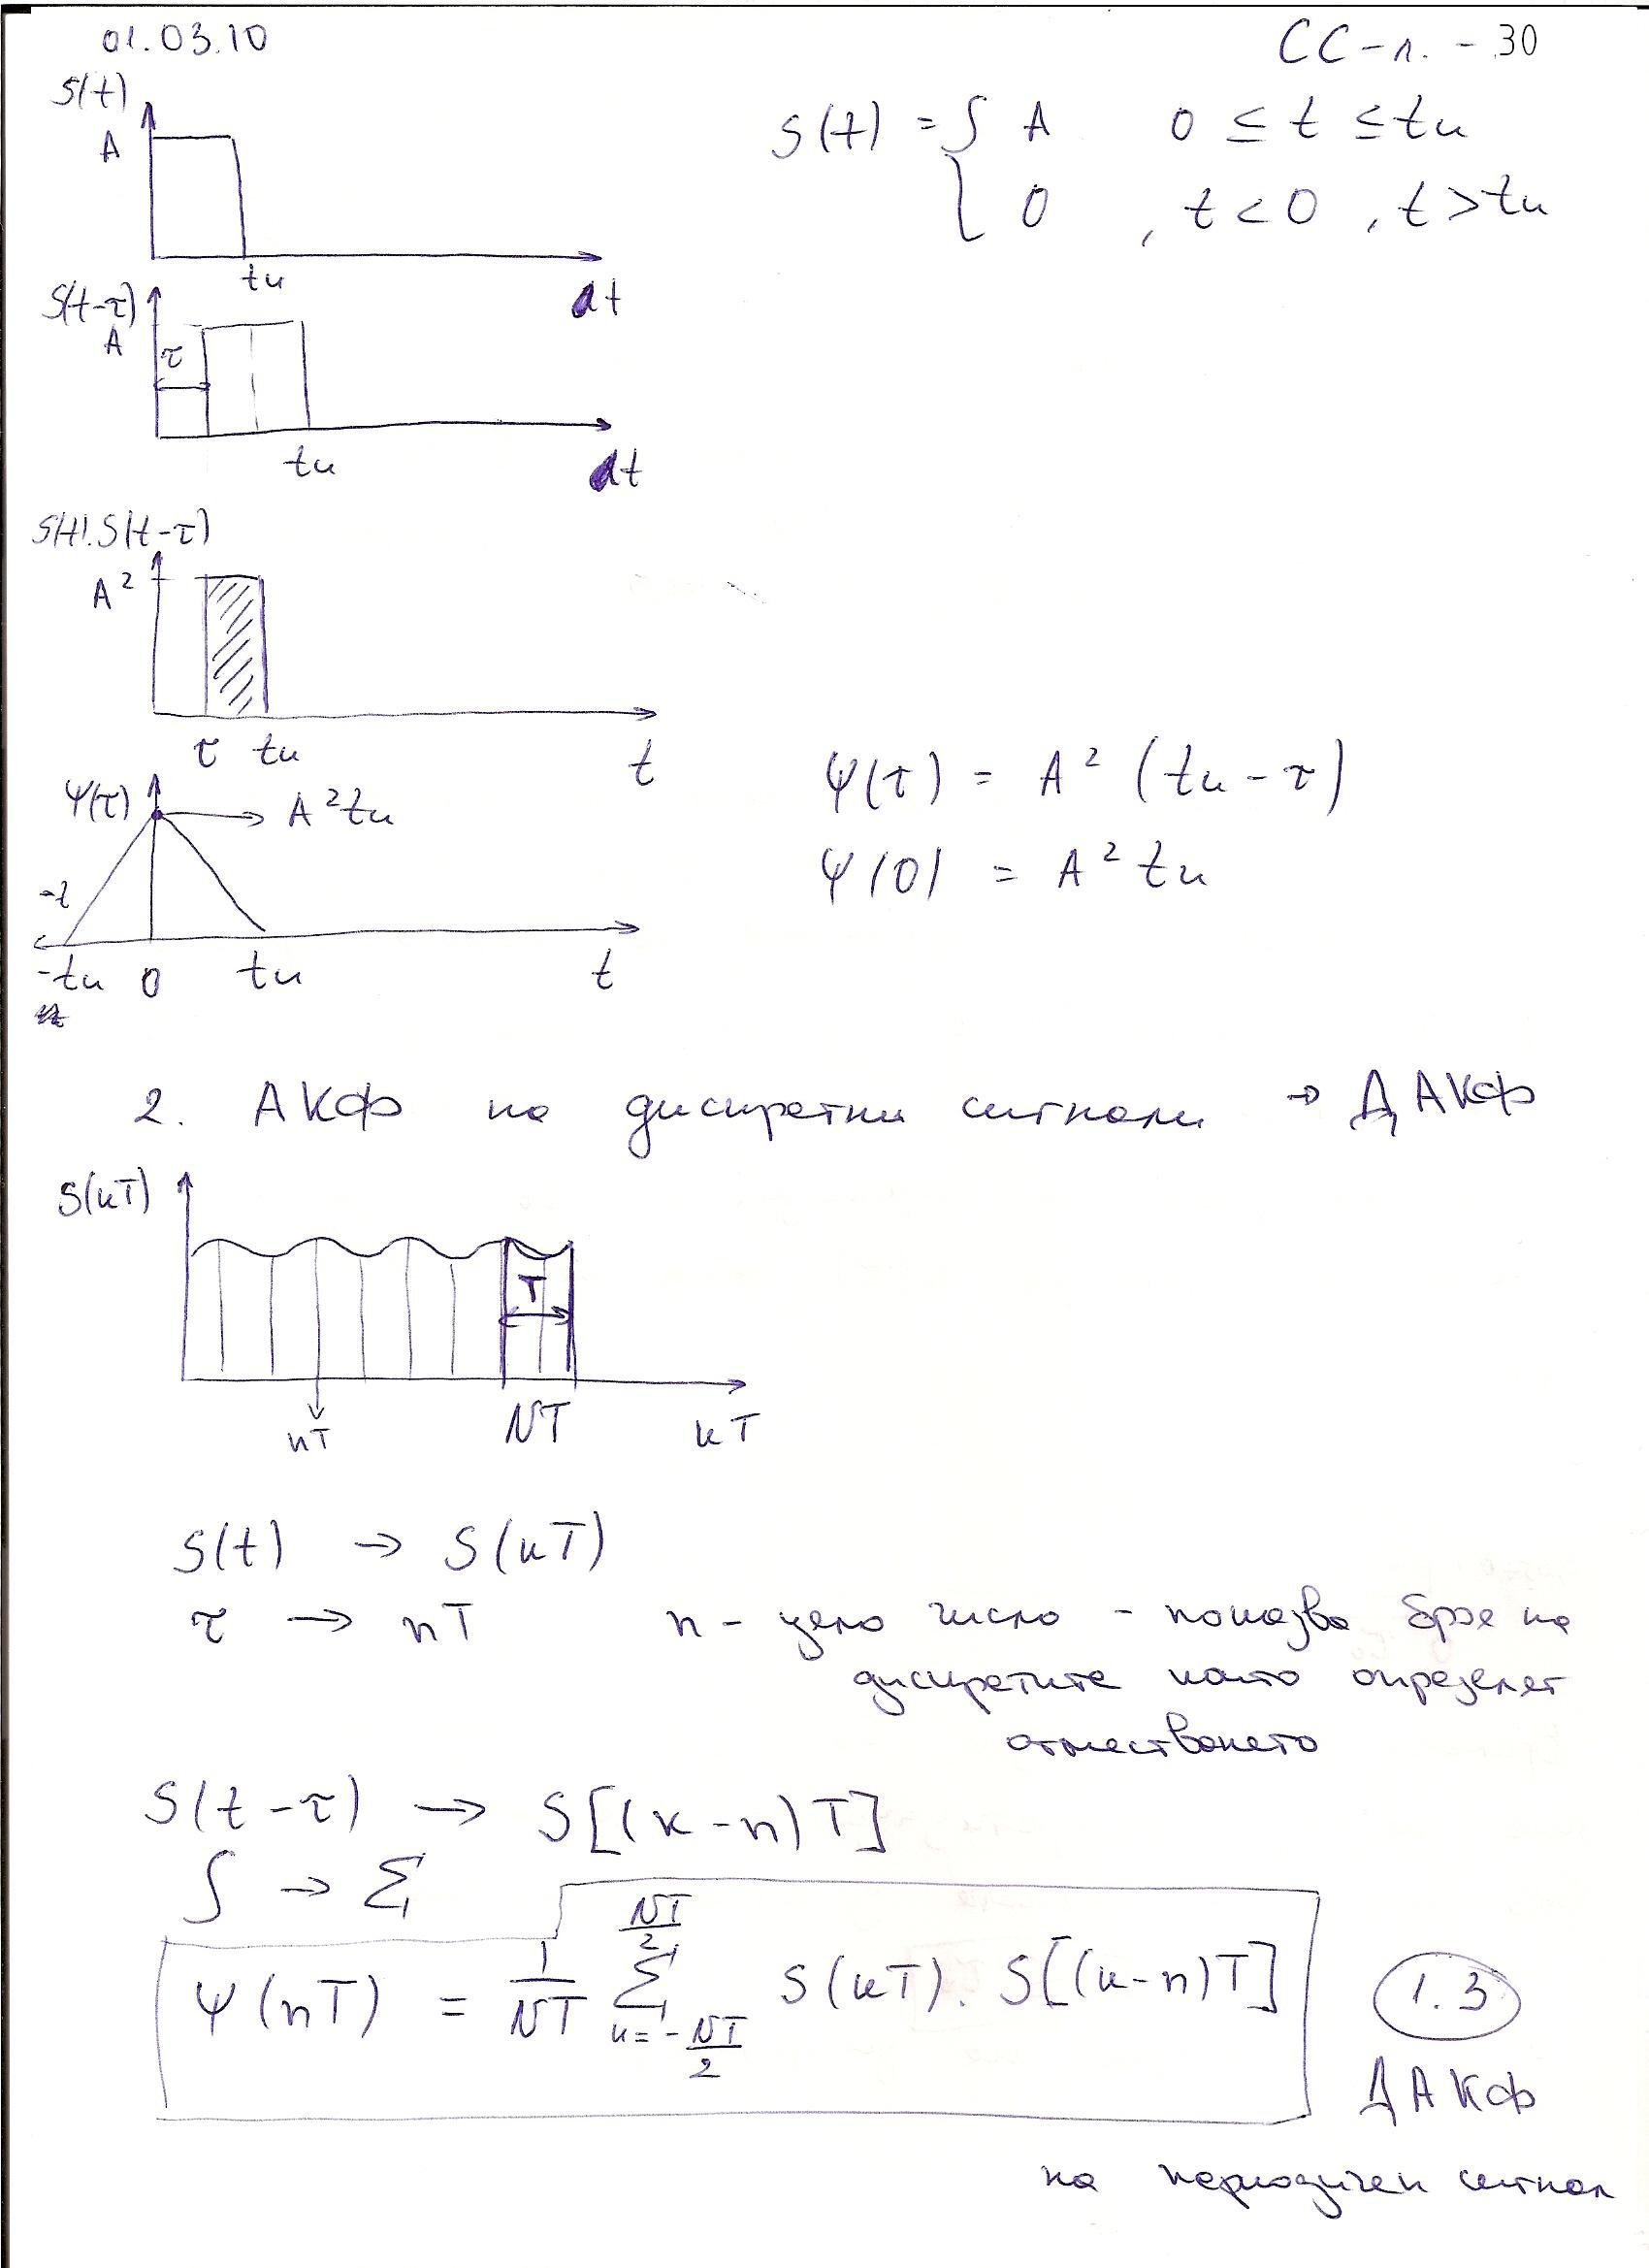 01.03.10
СС-л. - 30
S(t)
A
tu
t
S(t) = { A 0 ≤ t ≤ tu
0 , t < 0 , t > tu
S(t-τ)
A
τ
tu
t
S(t).S(t-τ)
A²
τ tu t
Ψ(τ)
A²tu
-t
-tu 0 tu t
Ψ(τ) = A² (tu - τ)
Ψ(0) = A² tu
2. АКФ на дискретни сигнали → ДАКФ
S(кТ)
T
nT
NT
кТ
S(t) → S(кТ)
τ → nT n - цяло число - показва броя на
дискретите които определят
отместването
S(t-τ) → S[(к-n)T]
∫ → Σ
NT/2
Ψ(nT) = 1/NT Σ S(кТ). S[(к-n)T]
к=-NT/2
1.3
ДАКФ
на периодичен сигнал